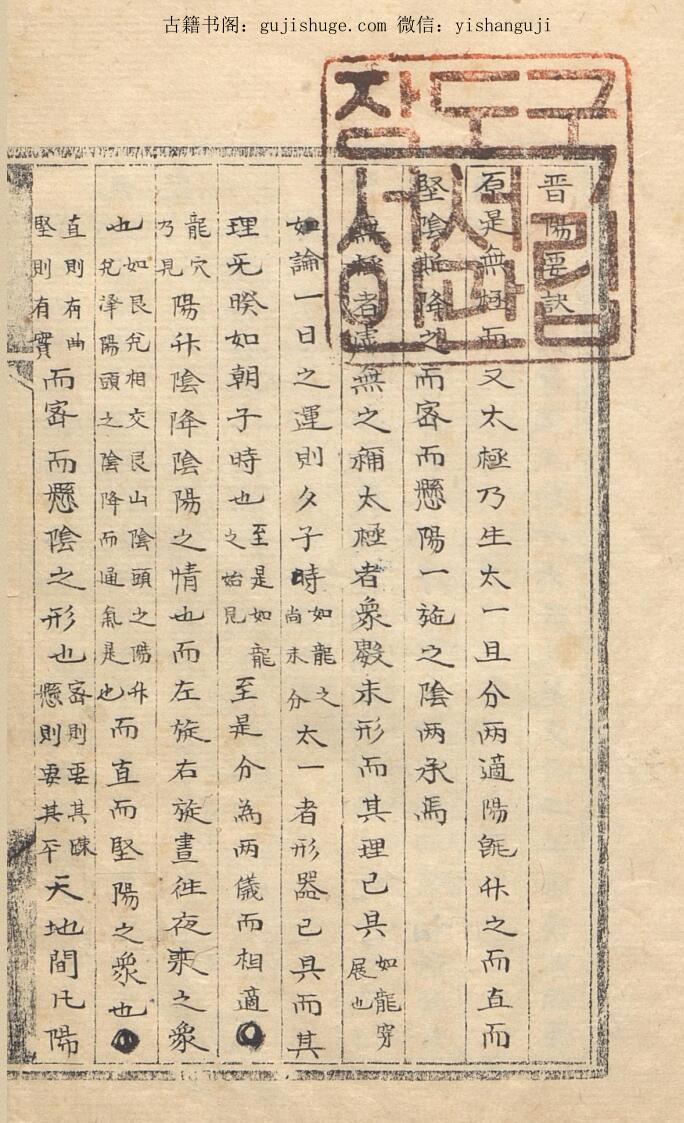 古籍书阁：gujishuge.com 微信：yishanguji
국립도서관장서인
晋陽要訣
原是無極而又太極乃生太一且分两適陽旣升之而直而
堅陰斯降之而宻而懸陽一施之陰两承焉
無極者虚無之稱太極者象數未形而其理已具如龍穿展也
如論一日之運則夕子時如龍之尚未分太一者形器已具而其
理旡暌如朝子時也至是如龍之始見至是分為两儀而相適
龍穴乃見陽升陰降陰陽之情也而左旋右旋晝徃夜来之象
也如艮兊相交艮山陰頭之陽升兊澤陽頭之陰降而通氣是也而直而堅陽之象也
直則有曲堅則有實而宻而懸陰之形也宻則要其踈懸則要其平天地間凡陽